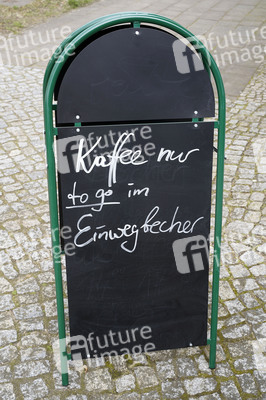 Kaffee nur
to go im
Einwegbecher
future image
future image
future image
future image
future image
future image